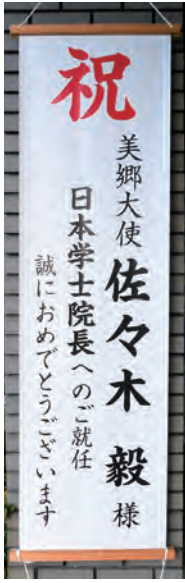 祝
美郷大使 佐々木 毅 様
日本学士院長へのご就任
誠におめでとうございます